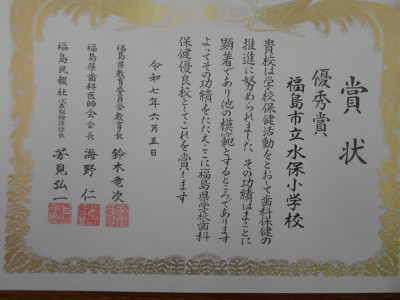 賞状
優秀賞
福島市立水保小学校
貴校は学校保健活動をとおして歯科保健の
推進に努められました その功績はまことに
顕著であり他の模範とするところであります
よってその功績をたたえここに福島県学校歯科
保健優良校としてこれを賞します
令和七年六月五日
福島県教育委員会教育長 鈴木竜次
福島県歯科医師会会長 海野仁
福島民報社代表取締役社長 芳見弘一